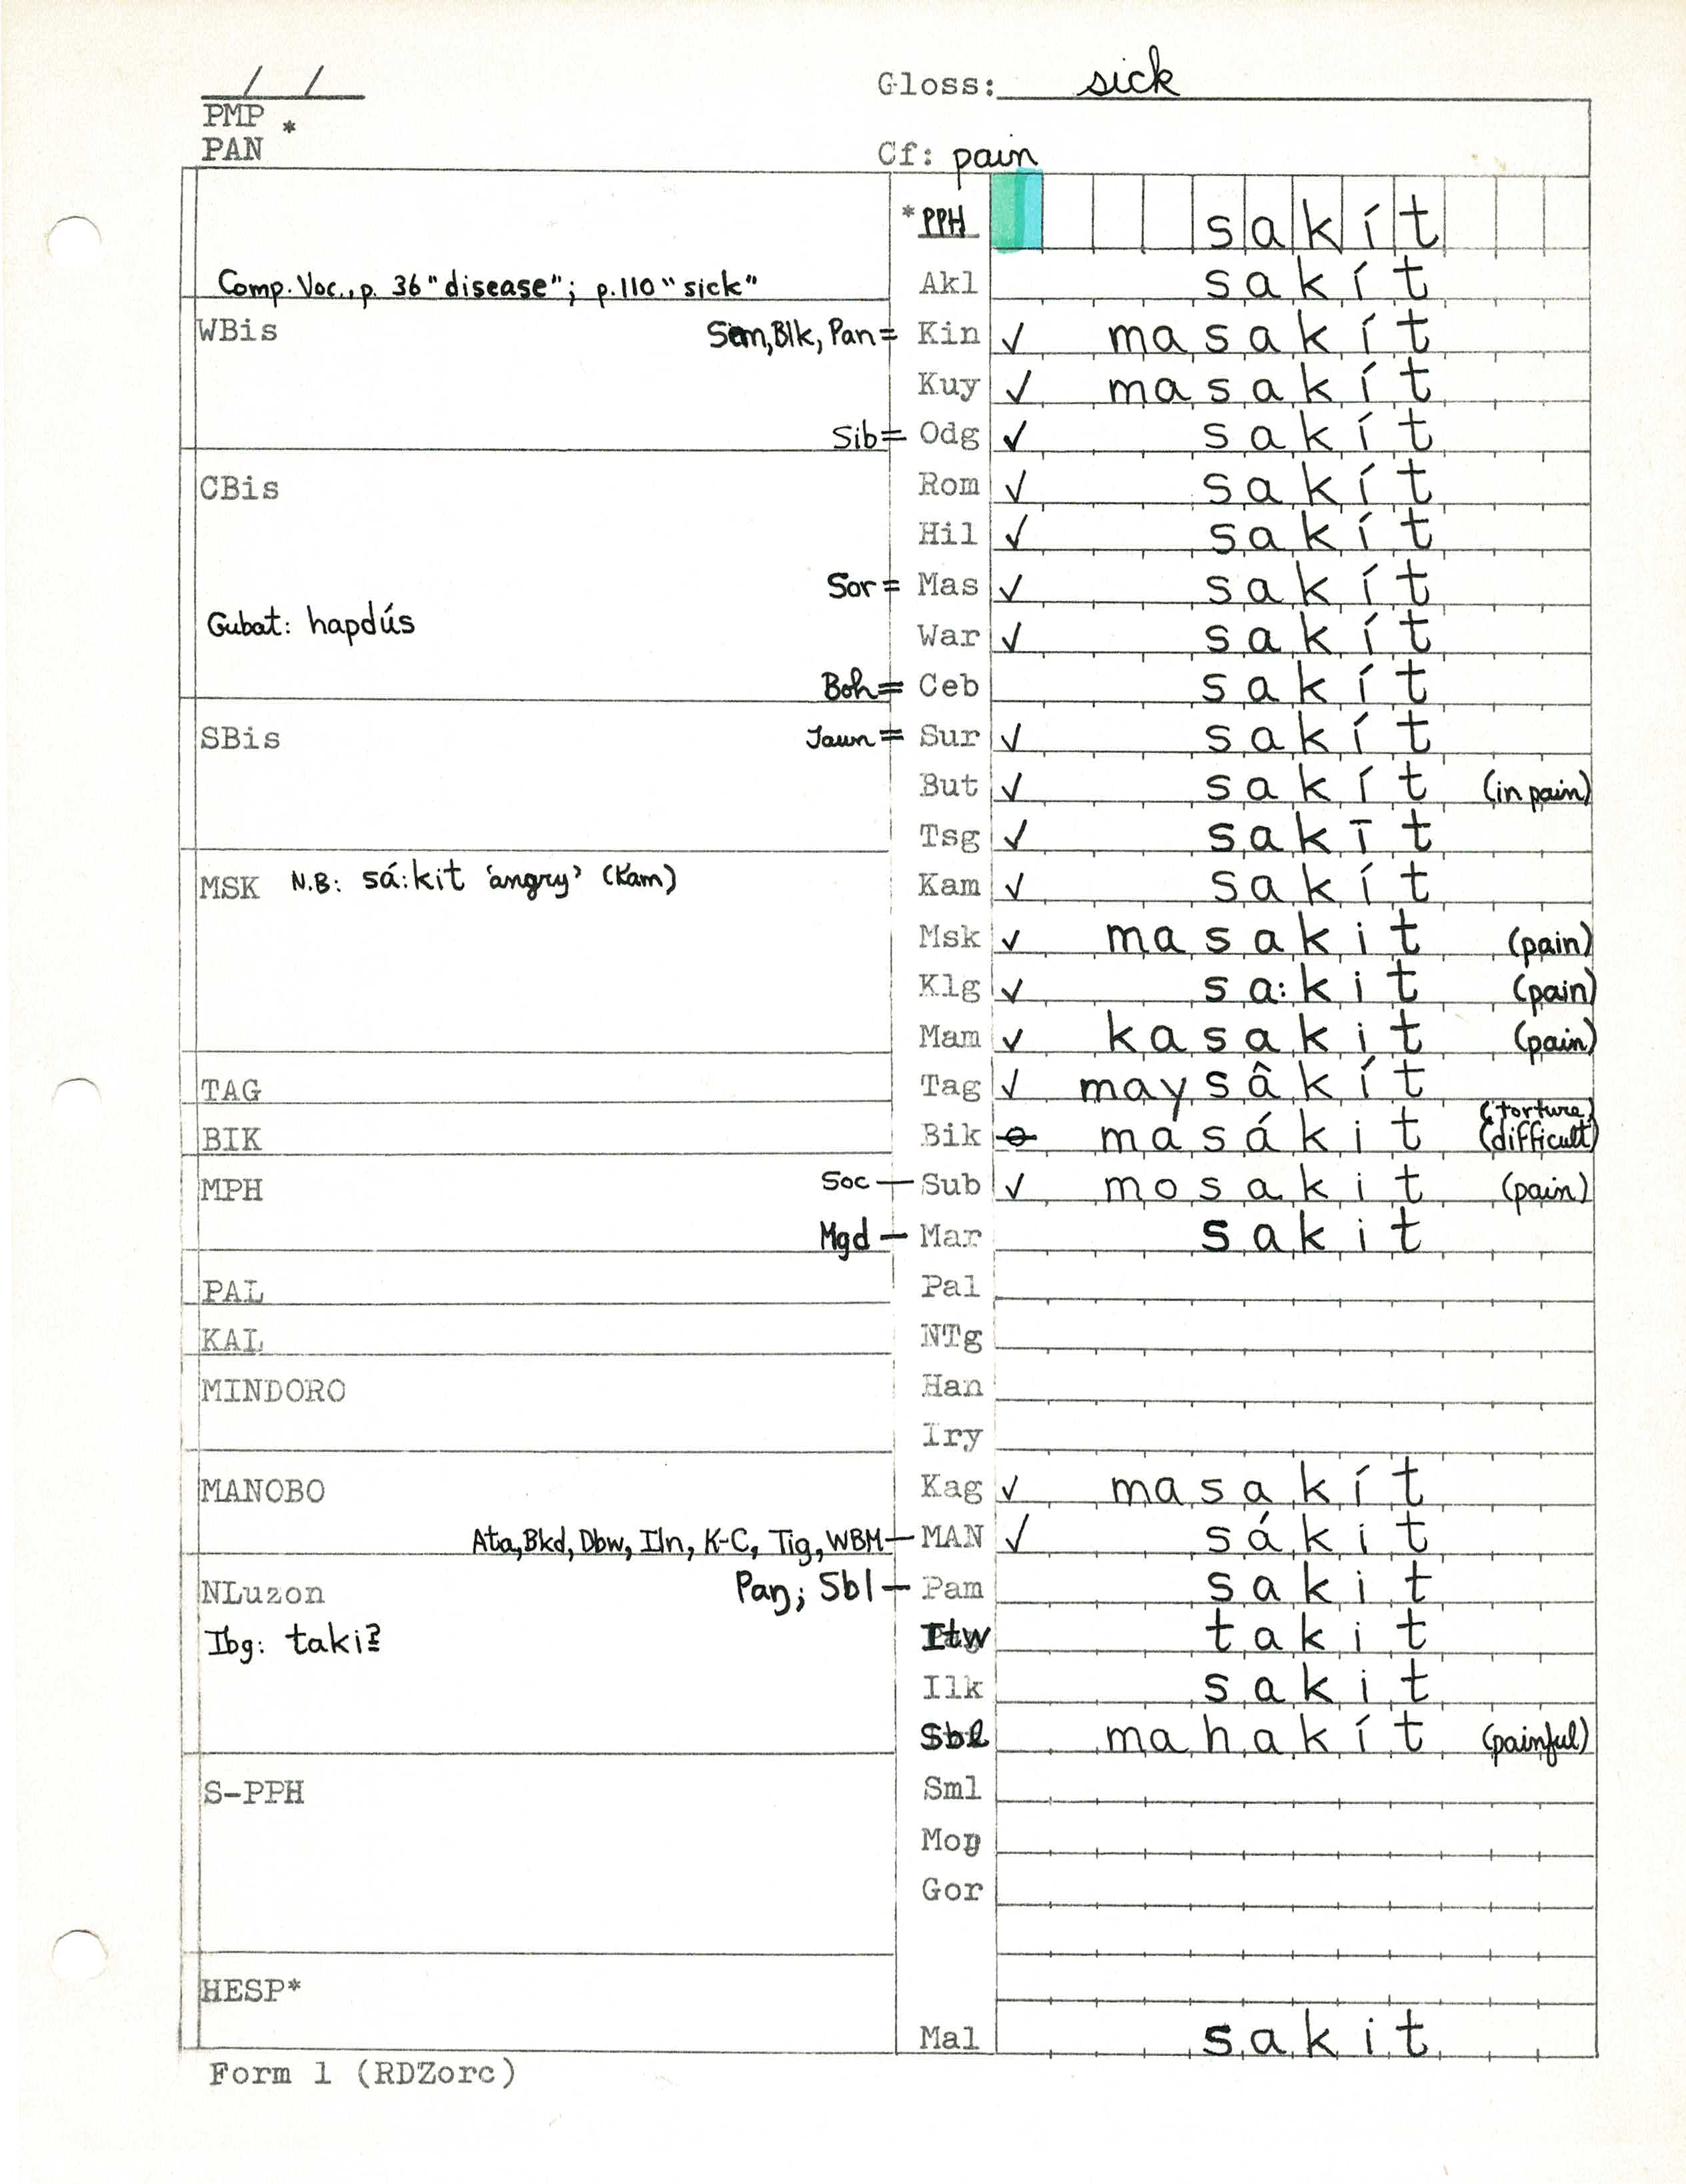 __/__/__ Gloss: sick
PMP *
PAN Cf: pain
*PPH sakít
Comp. Voc., p. 36 "disease"; p.110 "sick" Akl sakít
WBis Sem, Blk, Pan = Kin ✓ masakít
Kuy ✓ masakít
Sib = Odg ✓ sakít
CBis Rom ✓ sakít
Hil ✓ sakít
Sor = Mas ✓ sakít
Gubat: hapdús War ✓ sakít
Boh = Ceb sakít
SBis Jaun = Sur ✓ sakít
But ✓ sakít (in pain)
Tsg ✓ sakīt
MSK N.B: sá:kit 'angry' (Kam) Kam ✓ sakít
Msk ✓ masakit (pain)
Klg ✓ sa:kit (pain)
Mam ✓ kasakit (pain)
TAG Tag ✓ maysâkít
BIK Bik masákit (torture) (difficult)
MPH Soc — Sub ✓ mosakit (pain)
Mgd — Mar sakit
PAL Pal
KAL NTg
MINDORO Han
Iry
MANOBO Kag ✓ masakít
Ata, Bkd, Dbw, Iln, K-C, Tig, WBM — MAN ✓ sákit
NLuzon Paŋ; Sbl — Pam sakit
Ibg: takiʔ Itw takit
Ilk sakit
Sbl mahakít (painful)
S-PPH Sml
Moŋ
Gor
HESP*
Mal sakit
Form 1 (RDZorc)